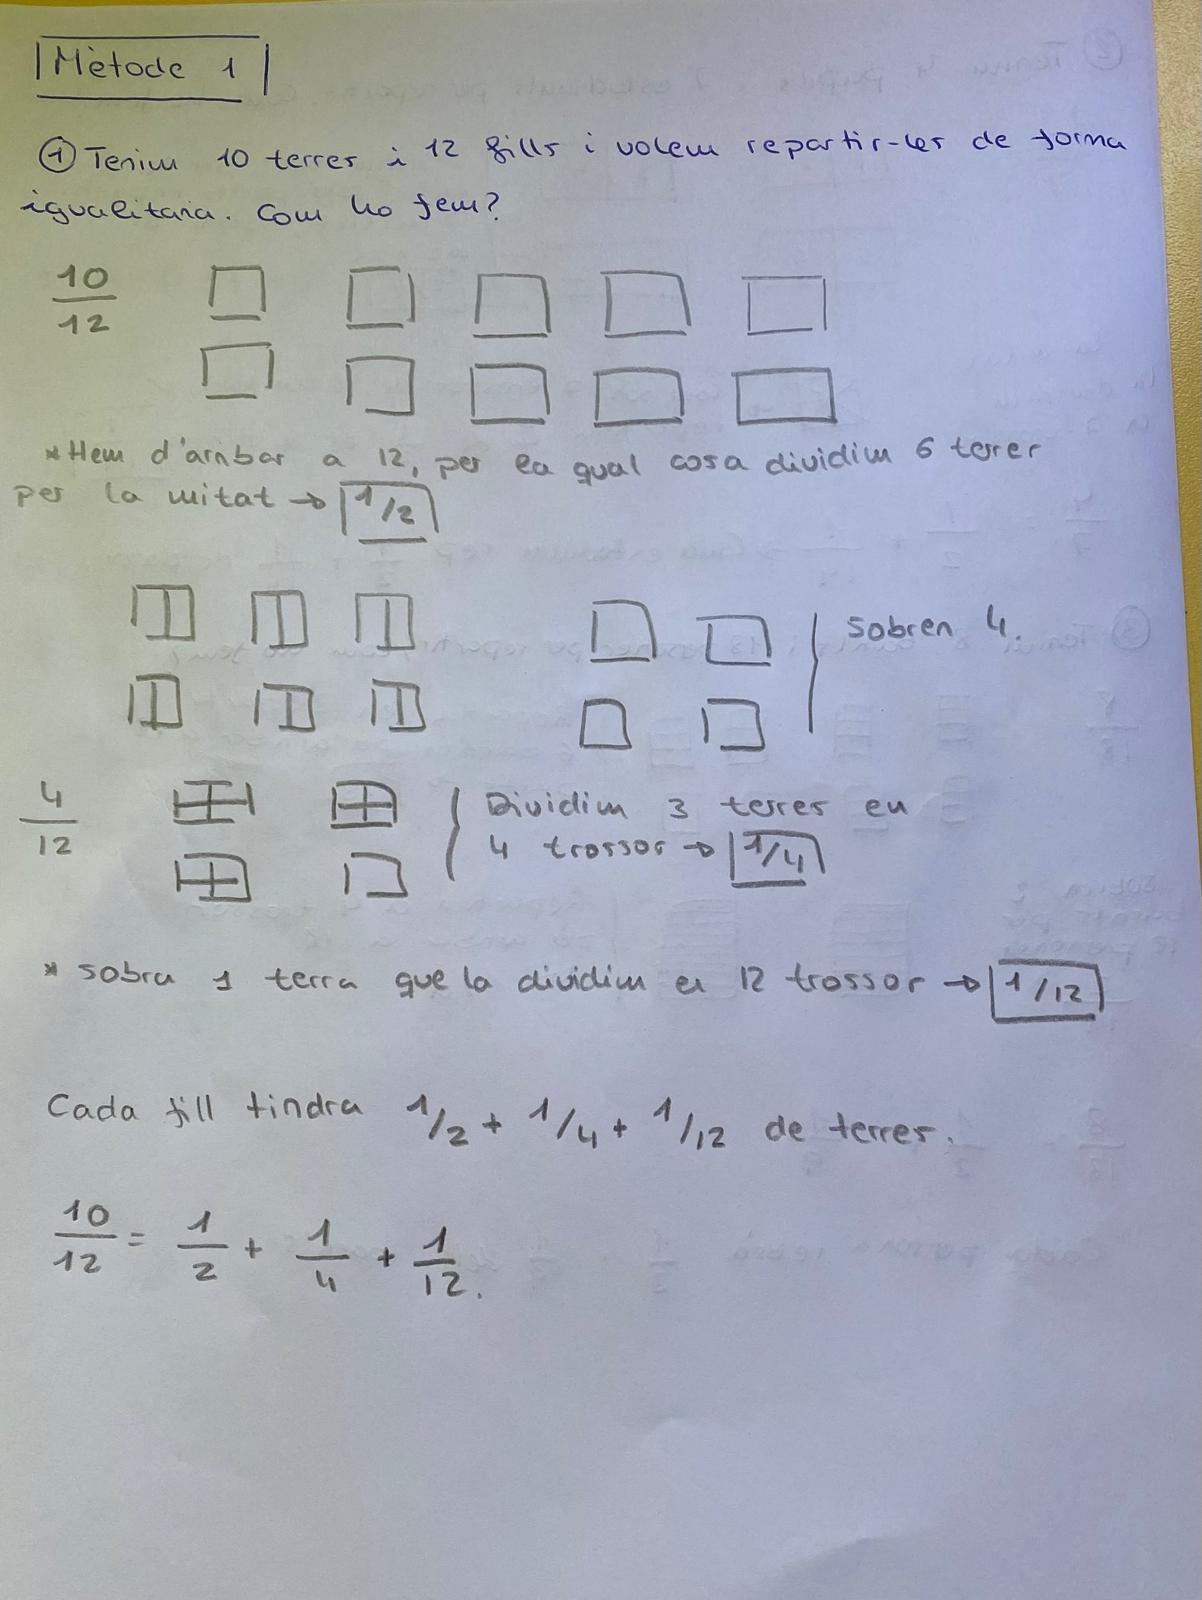 Mètode 1
① Tenim 10 terres i 12 fills i volem repartir-les de forma
igualitaria. Com ho fem?
10/12
*Hem d'arribar a 12, per la qual cosa dividim 6 terres
per la mitat → 1/2
sobren 4.
4/12
Dividim 3 terres en
4 trossos → 1/4
* sobra 1 terra que la dividim en 12 trossos → 1/12
Cada fill tindra 1/2 + 1/4 + 1/12 de terres.
10/12 = 1/2 + 1/4 + 1/12.